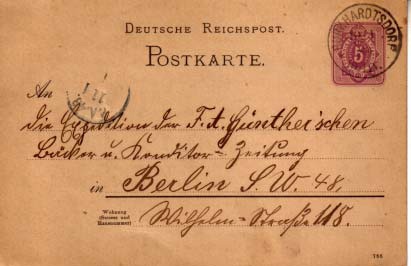 DEUTSCHE REICHSPOST.
POSTKARTE.
5
An
die Expedition der F. A. Günther'schen
Bäcker u. Konditor-Zeitung
in Berlin S. W. 48,
Wohnung
(Strasse und
Hausnummer)
Wilhelm-Straße 118.
788